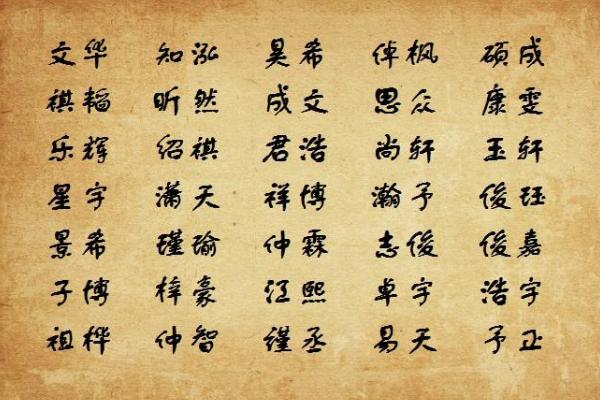 文华 知泓 昊希 倬枫 硕成
祺韬 昕然 成文 思众 康雯
乐辉 绍祺 君浩 尚轩 玉轩
星宇 潇天 祥博 瀚予 俊珏
景希 瑾瑜 仲霖 志俊 俊嘉
子博 梓豪 江熙 卓宇 浩宇
祖桦 仲智 谨丞 易天 予正